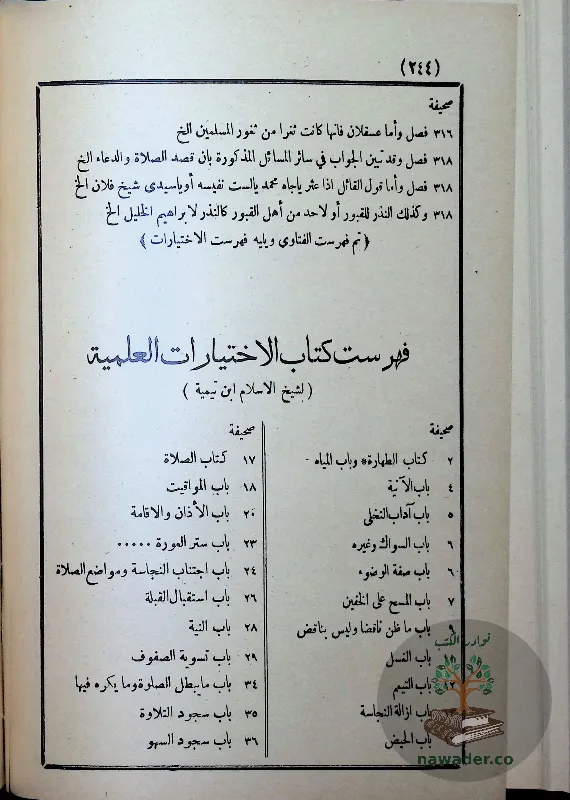 (٢٤٤)
صحيفة
٣١٦ فصل وأما عسقلان فانها كانت ثغرا من ثغور المسلمين الخ
٣١٨ فصل وقد تبين الجواب في سائر المسائل المذكورة بان قصد الصلاة والدعاء الخ
٣١٨ فصل وأما قول القائل اذا عثر ياجاه محمد يالست نفيسه أو ياسيدى شيخ فلان الخ
٣١٨ وكذلك النذر للقبور أو لاحد من أهل القبور كالنذر لابراهيم الخليل الخ
﴿تم فهرست الفتاوي ويليه فهرست الاختيارات﴾
فهرست كتاب الاختيارات العلمية
(لشيخ الاسلام ابن تيمية)
صحيفة
٢ كتاب الطهارة* وباب المياه
٤ باب الآنية
٥ باب آداب التخلى
٦ باب السواك وغيره
٦ باب صفة الوضوء
٧ باب المسح على الخفين
٩ باب ما ظن ناقضا وليس بناقض
باب الغسل
١٢ باب التيمم
باب ازالة النجاسة
باب الحيض
صحيفة
١٧ كتاب الصلاة
١٨ باب المواقيت
٢٠ باب الأذان والاقامة
٢٣ باب ستر العورة .....
٢٤ باب اجتناب النجاسة ومواضع الصلاة
٢٦ باب استقبال القبلة
٢٨ باب النية
٢٩ باب تسوية الصفوف
٣٤ باب مايبطل الصلوة وما يكره فيها
٣٥ باب سجود التلاوة
٣٦ باب سجود السهو
نوادر الكتب
nawader.co